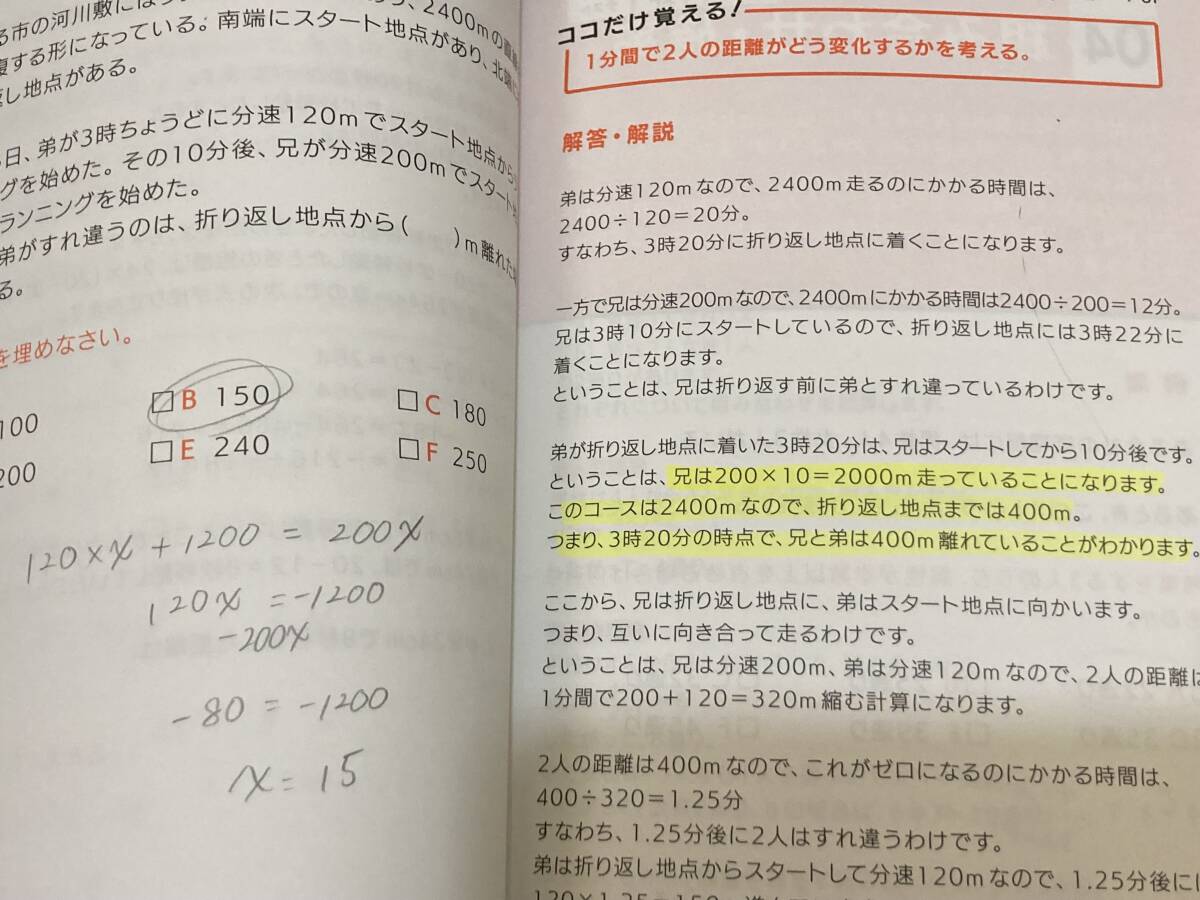 る市の河川敷に
2400mの
復する形になっている。南端にスタート地点があり、北端に
返し地点がある。
日、弟が3時ちょうどに分速120mでスタート地点から
グを始めた。その10分後、兄が分速200mでスタート
ランニングを始めた。
弟がすれ違うのは、折り返し地点から( )m離れた
る。
を埋めなさい。
100
□B 150
□C 180
200
□E 240
□F 250
120×x+1200=200x
120x=-1200
-200x
-80=-1200
x=15
04
ココだけ覚える!
1分間で2人の距離がどう変化するかを考える。
解答・解説
弟は分速120mなので、2400m走るのにかかる時間は、
2400÷120=20分。
すなわち、3時20分に折り返し地点に着くことになります。
一方で兄は分速200mなので、2400mにかかる時間は2400÷200=12分。
兄は3時10分にスタートしているので、折り返し地点には3時22分に
着くことになります。
ということは、兄は折り返す前に弟とすれ違っているわけです。
弟が折り返し地点に着いた3時20分は、兄はスタートしてから10分後です。
ということは、兄は200×10=2000m走っていることになります。
このコースは2400mなので、折り返し地点までは400m。
つまり、3時20分の時点で、兄と弟は400m離れていることがわかります。
ここから、兄は折り返し地点に、弟はスタート地点に向かいます。
つまり、互いに向き合って走るわけです。
ということは、兄は分速200m、弟は分速120mなので、2人の距離は
1分間で200+120=320m縮む計算になります。
2人の距離は400mなので、これがゼロになるのにかかる時間は、
400÷320=1.25分
すなわち、1.25分後に2人はすれ違うわけです。
弟は折り返し地点からスタートして分速120mなので、1.25分後には
120×1.25=150